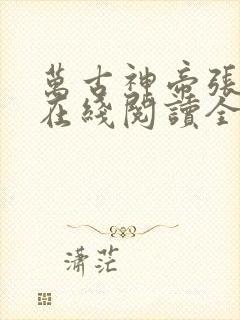 萬古神帝張
在綫閱讀全
瀟茫